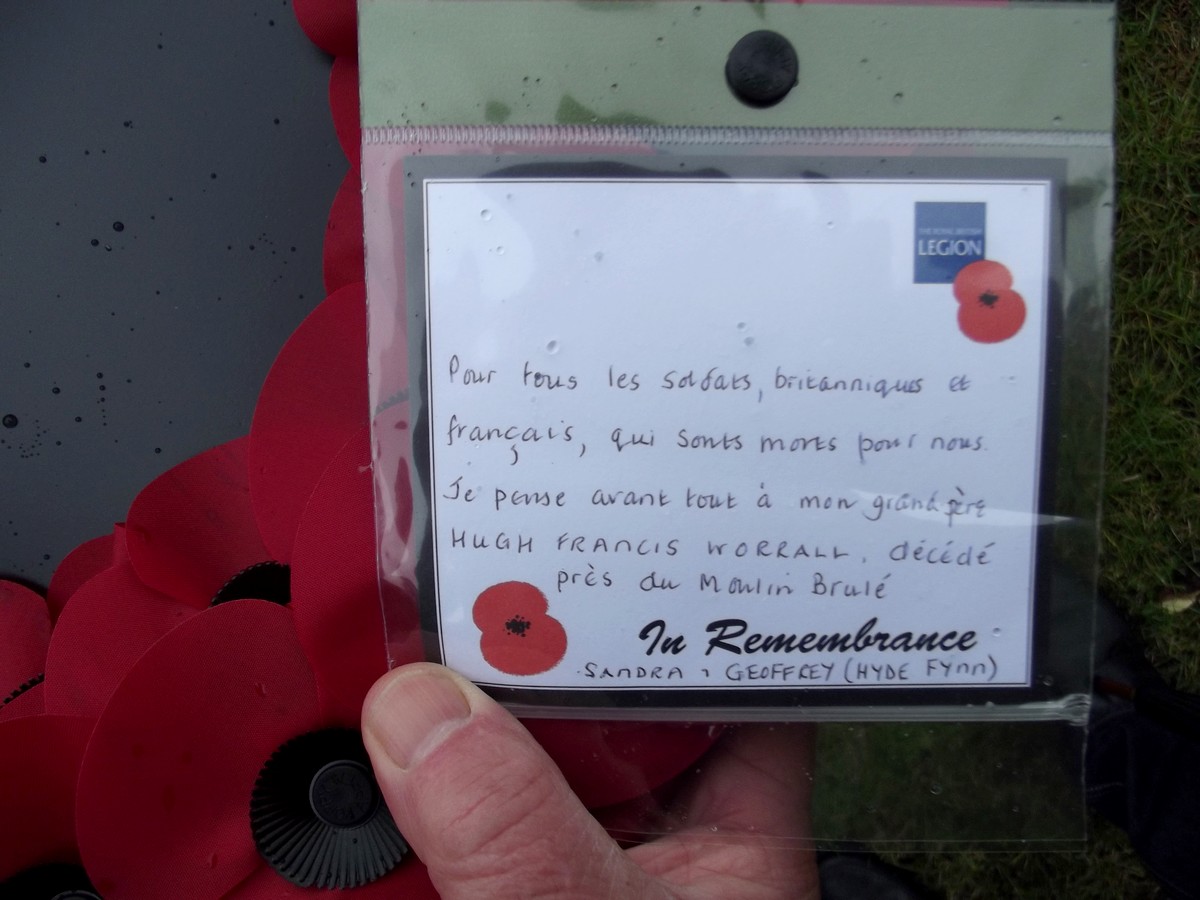 THE ROYAL BRITISH
LEGION
Pour tous les soldats, britanniques et
français, qui sonts morts pour nous.
Je pense avant tout à mon grand père
HUGH FRANCIS WORRALL, décédé
près du Moulin Brulé
In Remembrance
SANDRA & GEOFFREY (HYDE FYNN)